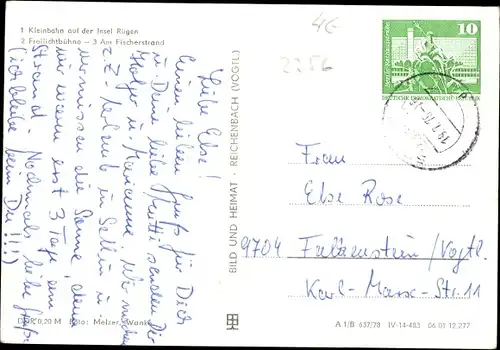 1 Kleinbahn auf der Insel Rügen
2 Freilichtbühne – 3 Am Fischerstrand
4€
2256
10
DEUTSCHE DEMOKRATISCHE
Liebe Else!
Einen lieben Gruß für Dich
u. Deine liebe Mutti senden Dir
Holger u. Marianne. Wir machen
z.Z. Urlaub in Sellin u.
vermissen die Sonne, denn
wir waren erst 3 Tage am
Strand. Nochmals liebe Grüße
(ich bleibe beim Du!!!)
BILD UND HEIMAT · REICHENBACH (VOGTL)
Frau
Else Rose
9704 Falkenstein/Vogtl.
Karl-Marx-Str. 11
DDR 0,20 M Foto: Melzer, Wanke
A 1/B 637/78 IV-14-483 06 01 12 277